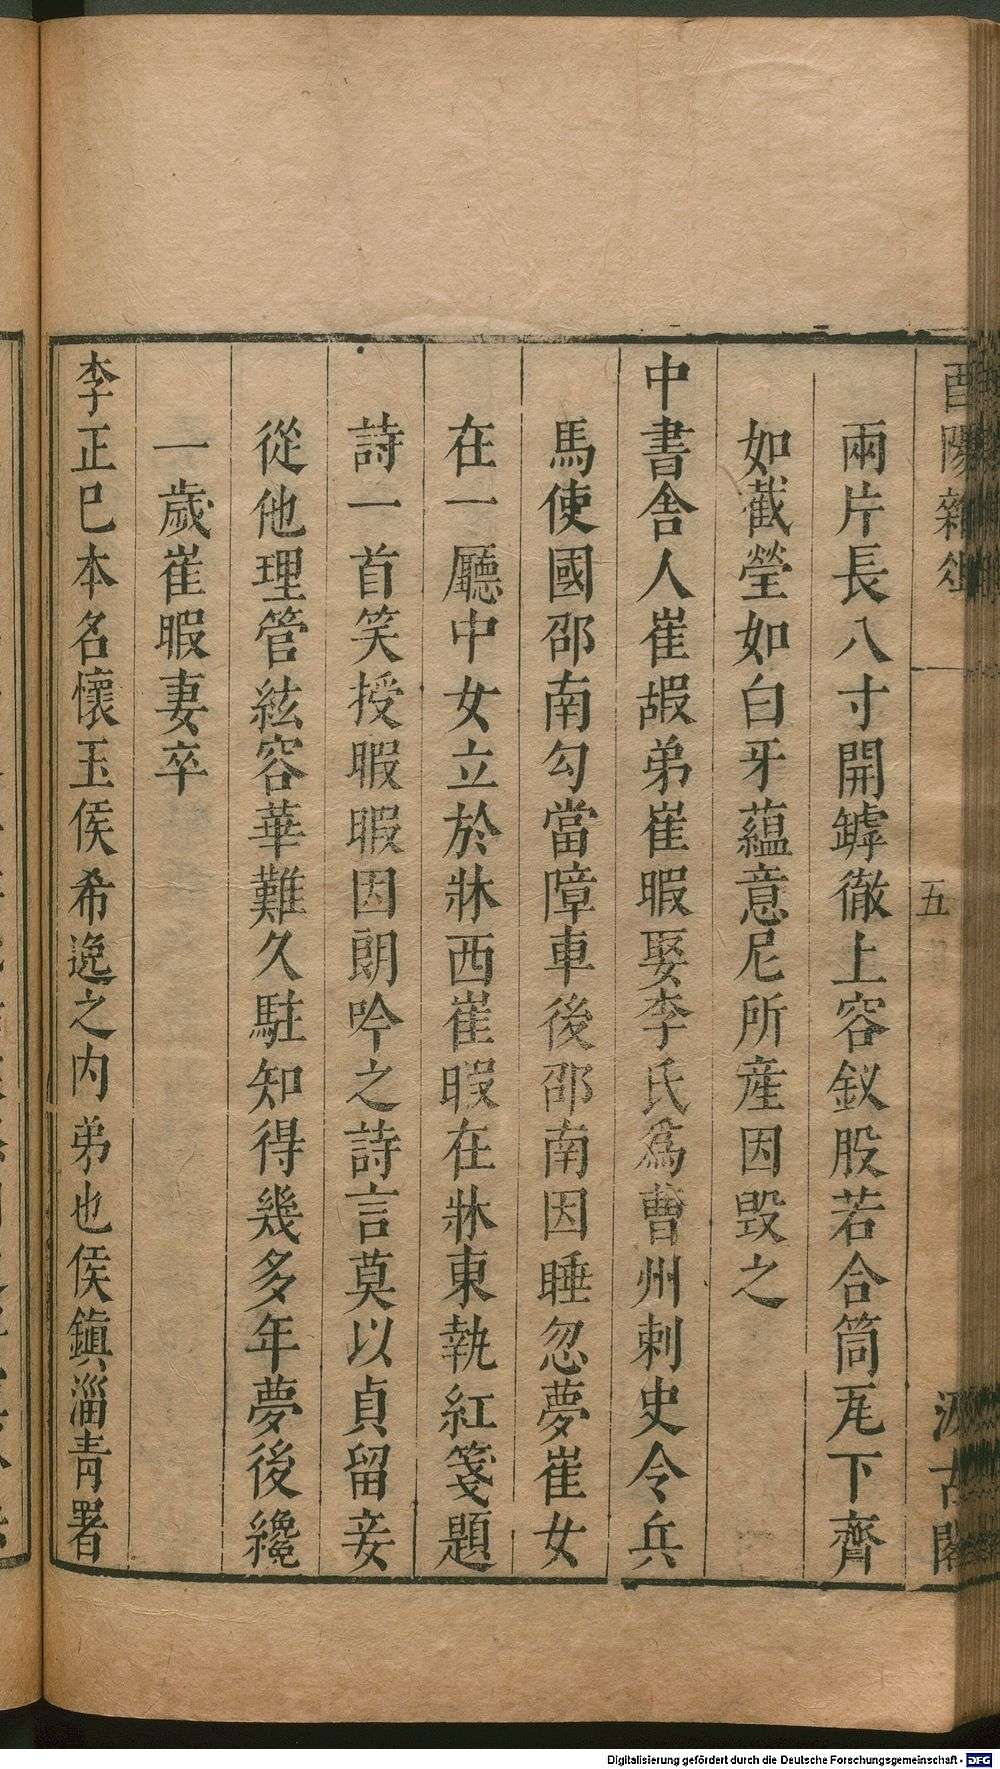 酉陽雜俎
五
汲古閣
兩片長八寸開罅徹上容釵股若合筒瓦下齊
如截瑩如白牙蘊意尼所産因毀之
中書舍人崔嘏弟崔暇娶李氏爲曹州刺史令兵
馬使國邵南勾當障車後邵南因睡忽夢崔女
在一廳中女立於牀西崔暇在牀東執紅箋題
詩一首笑授暇暇因朗吟之詩言莫以貞留妾
從他理管絃容華難久駐知得幾多年夢後纔
一歲崔暇妻卒
李正巳本名懷玉侯希逸之內弟也侯鎭淄靑署
Digitalisierung gefördert durch die Deutsche Forschungsgemeinschaft - DFG